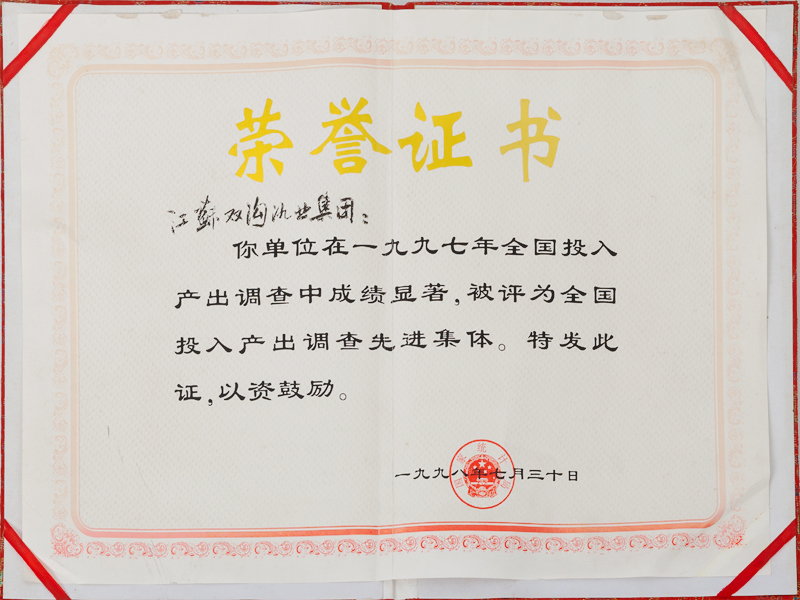 荣誉证书
江蘇双沟酒业集团：
你单位在一九九七年全国投入
产出调查中成绩显著，被评为全国
投入产出调查先进集体。特发此
证，以资鼓励。
国家统计局
一九九八年七月三十日